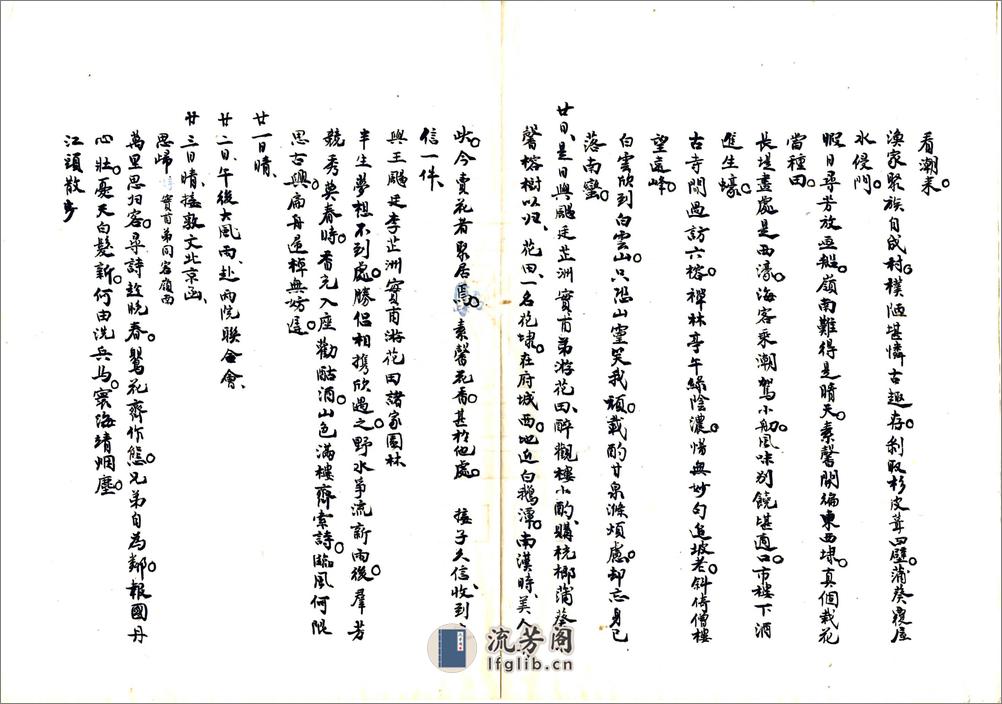 看潮來。
漁家聚族自成村。樸陋堪憐古趣存。剝取杉皮葺四壁。蒲葵覆屋
水侵門。
暇日尋芳放逕船。嶺南難得是晴天。素馨開編東西埭。真個栽花
當種田。
長堤盡處是西濠。海客乘潮駕小舠。風味別饒堪適口。市樓下酒
進生蠔。
古寺閒過訪六榕。禪林亭午綠陰濃。愧無妙句追坡老。斜倚僧樓
望遠峰。
白雲欣到白雲山。只恐山靈笑我頑。載酌甘泉滌煩慮。却忘身已
落南蠻。
廿日、是日與颺廷芷洲實甫弟游花田、醉觀樓小酌、購桄榔蒲葵
馨榕樹以归、花田、一名花埭。在府城西。地近白鵝潭。南漢時、美人
此。今賣花者聚居焉。素馨花香。甚於他處。 接子久信、收到、
信一件、
與王颺廷李芷洲實甫游花田諸家園林
半生夢想不到處。勝侶相携欣遇之。野水爭流新雨後。羣芳
競秀莫春時。香光入座勸酤酒。山色滿樓齊索詩。臨風何限
思古興。扁舟返棹無妨遲。
廿一日晴、
廿二日、午後大風雨、赴兩院聯合會、
廿三日晴、接敦文北京函、
思歸 實甫弟同客嶺西
萬里思归客。尋詩趁晚春。鶯花齊作態。兄弟自為鄰。報國丹
心壯。憂天白髮新。何由洗兵馬。寰海靖烟塵。
江頭散步
流芳阁
lfglib.cn